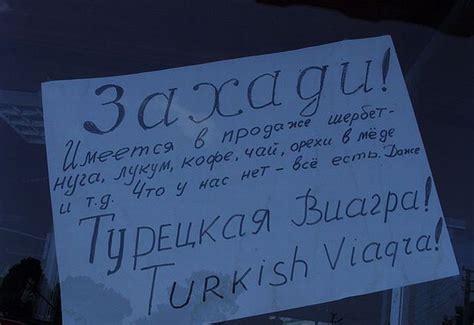 Захади!
Имеется в продаже щербет-
нуга, лукум, кофе, чай, орехи в мёде
и т.д. Что у нас нет - всё есть. Даже
Турецкая Виагра!
Turkish Viagra!